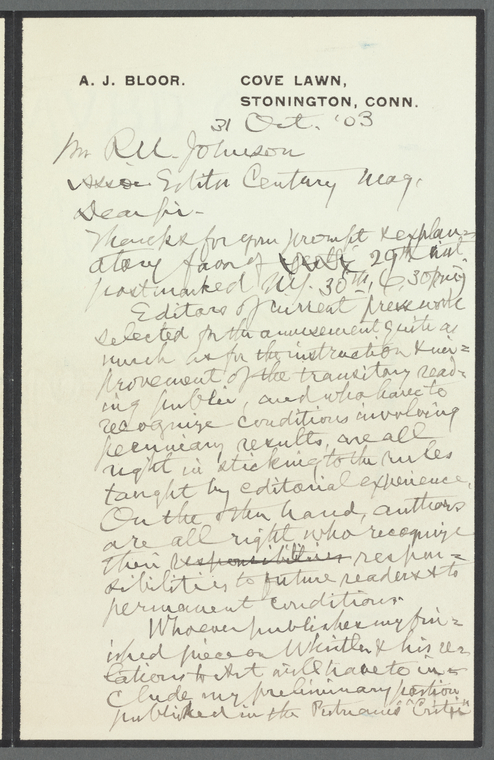 A. J. BLOOR.
COVE LAWN,
STONINGTON, CONN.
31 Oct. '03
Mr R. U. Johnson
Editor Century Mag.
Dear Sir -
Thanks for your prompt & explan=
atory favor of 29th inst
postmarked N.Y. 30th, 6.30 pm
Editors of current press work
selected for the amusement quite as
much as for the instruction & im=
provement of the transitory read=
ing public, and who have to
recognize conditions involving
pecuniary results, are all
right in sticking to the rules
taught by editorial experience.
On the other hand, authors
are all right who recognize
their responsibilities respon=
sibilities to future readers & to
permanent conditions.
Whoever publishes my fin=
ished piece on Whistler & his re=
lations to Art will have to in=
clude my preliminary portion
published in the Putnams' "Critic"